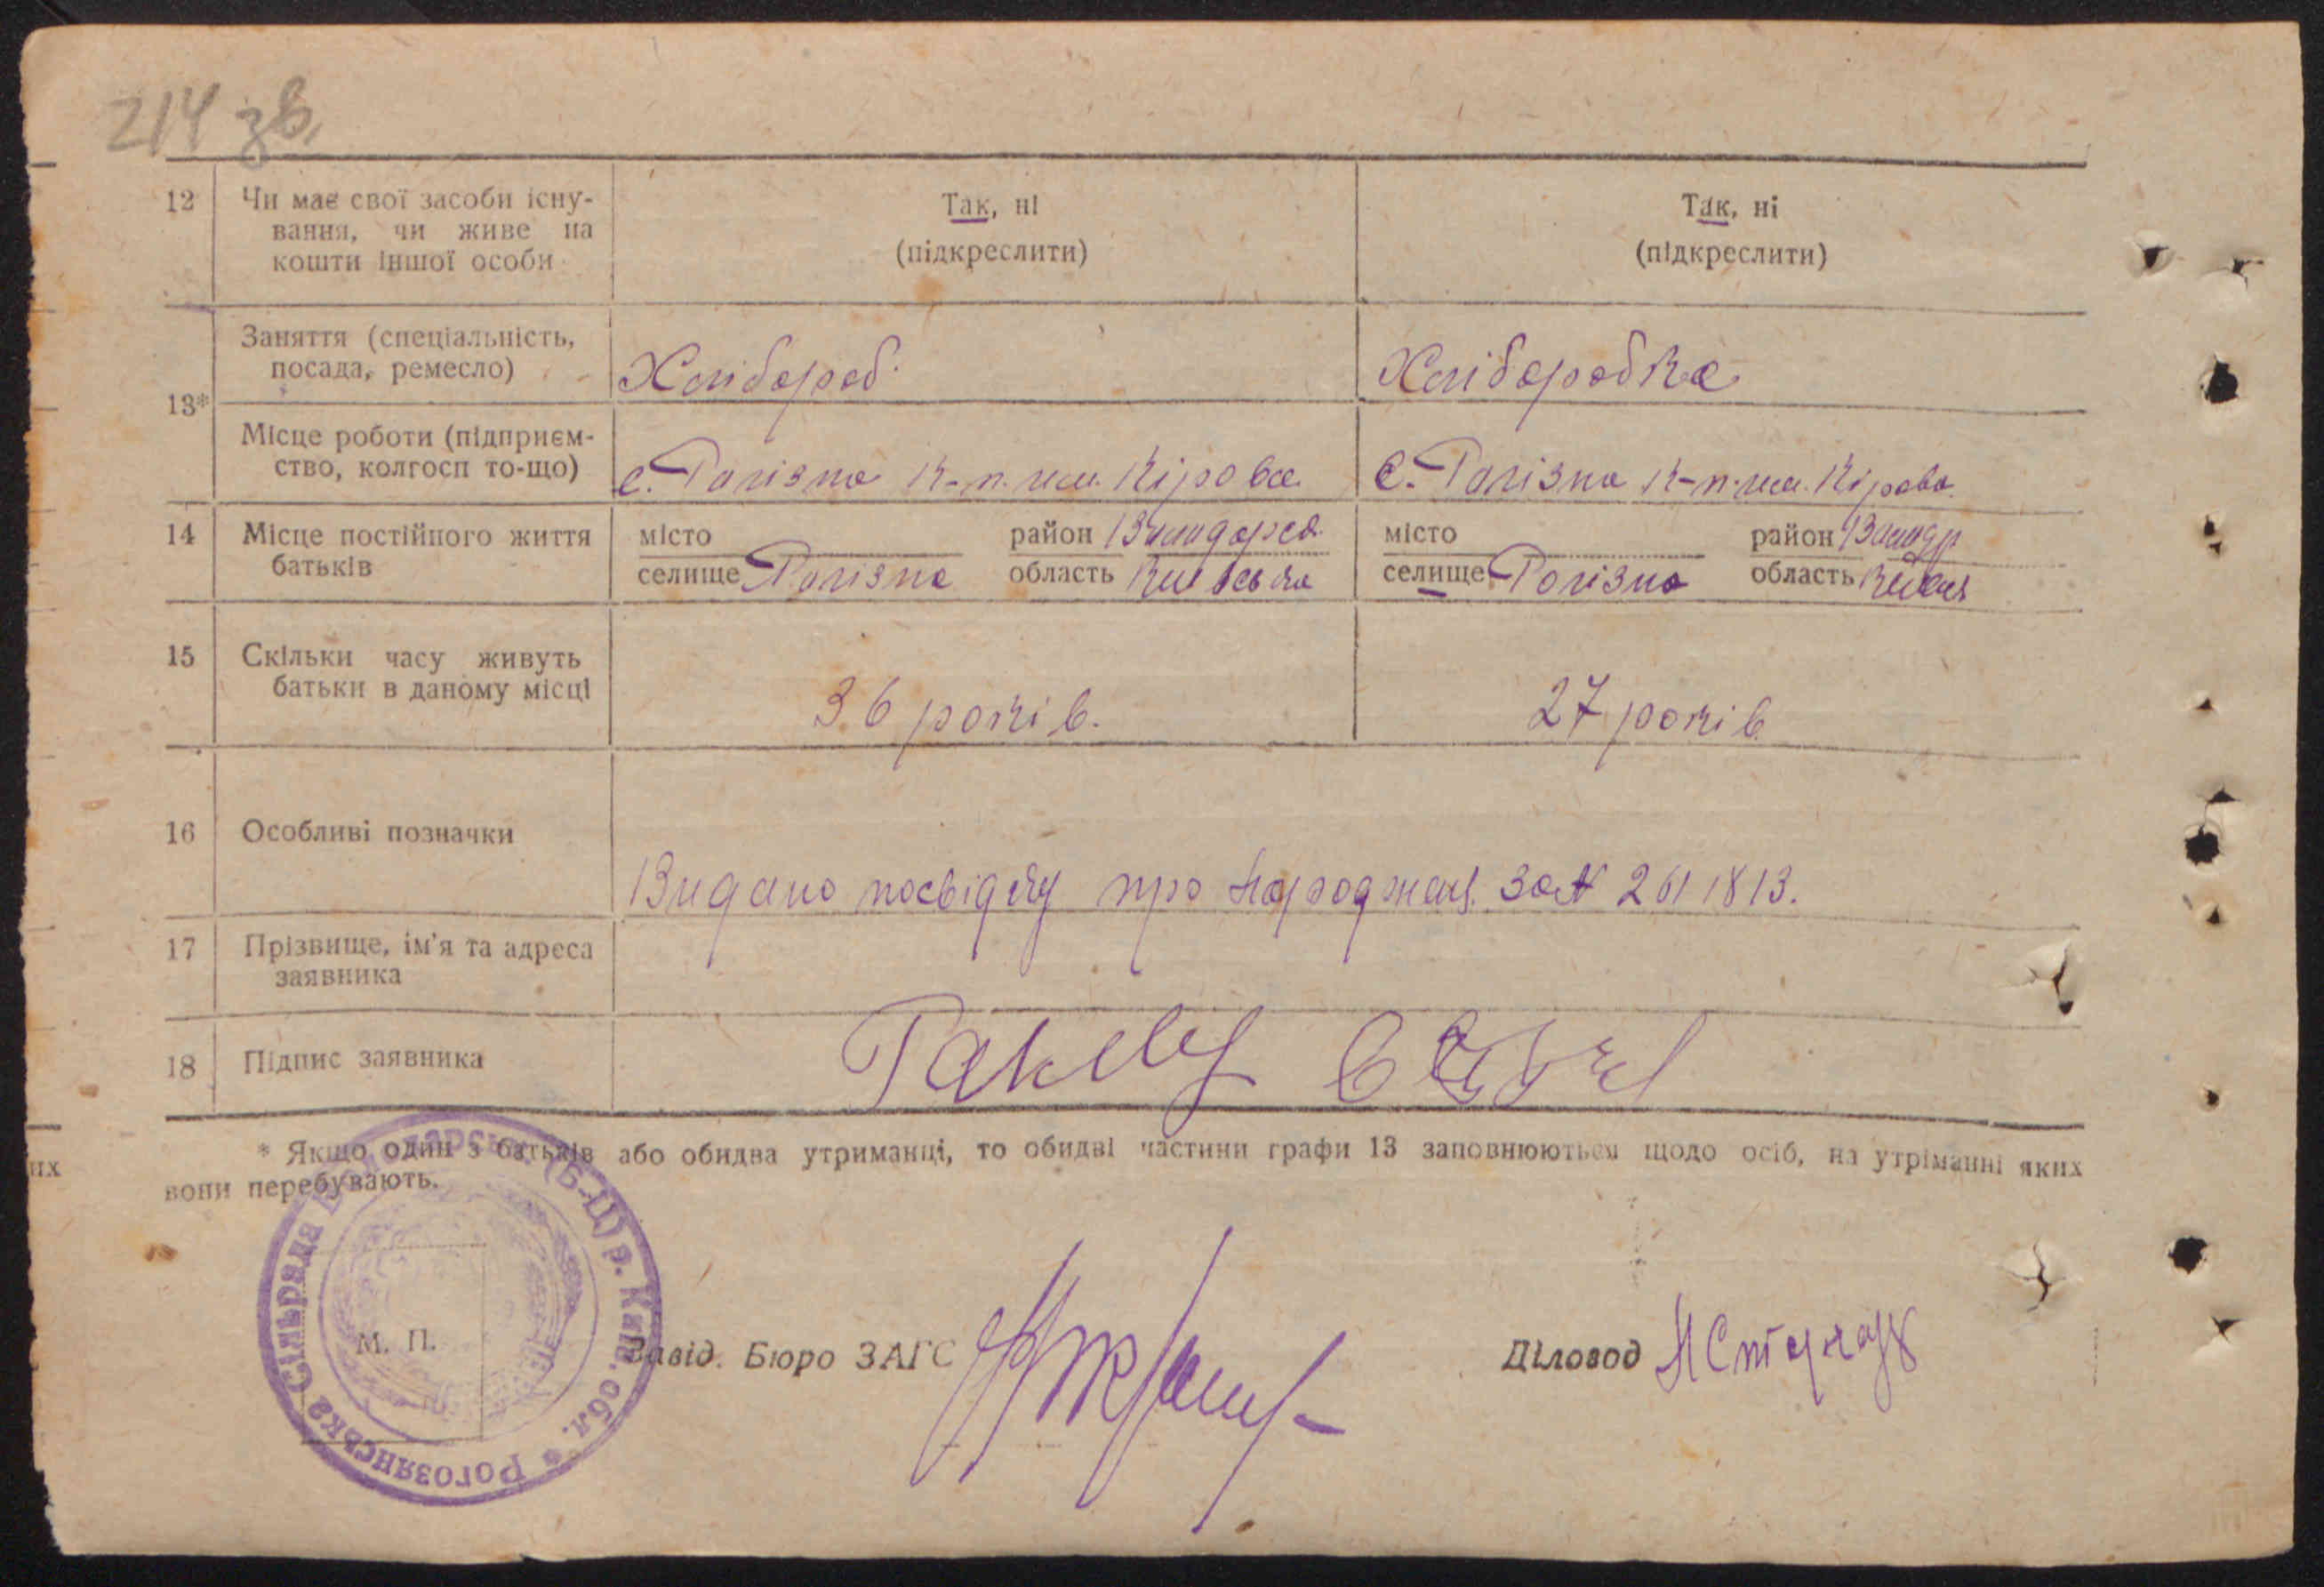 214 зв.
12 Чи має свої засоби існу-
вання, чи живе на
кошти іншої особи
Так, ні
(підкреслити)
Так, ні
(підкреслити)
13*
Заняття (спеціальність,
посада, ремесло)
Хлібороб
Хліборобка
Місце роботи (підприєм-
ство, колгосп то-що)
с. Рогізна к-п. им. Кірова
с. Рогізна к-п. им. Кірова
14 Місце постійного життя
батьків
місто
селище Рогізна
район Володарсь.
область Київська
місто
селище Рогізна
район Володр
область Київсь
15 Скільки часу живуть
батьки в даному місці
36 років.
27 років
16 Особливі позначки
Видано посвідку про народжен. за № 261813.
17 Прізвище, ім'я та адреса
заявника
18 Підпис заявника
* Якщо один з батьків або обидва утриманці, то обидві частини графи 13 заповнюються щодо осіб, на утріманні яких
вони перебувають.
их
Рогозянська Сільрада (Б-Ц) р. Київ. обл.
М. П.
Завід. Бюро ЗАГС
Діловод